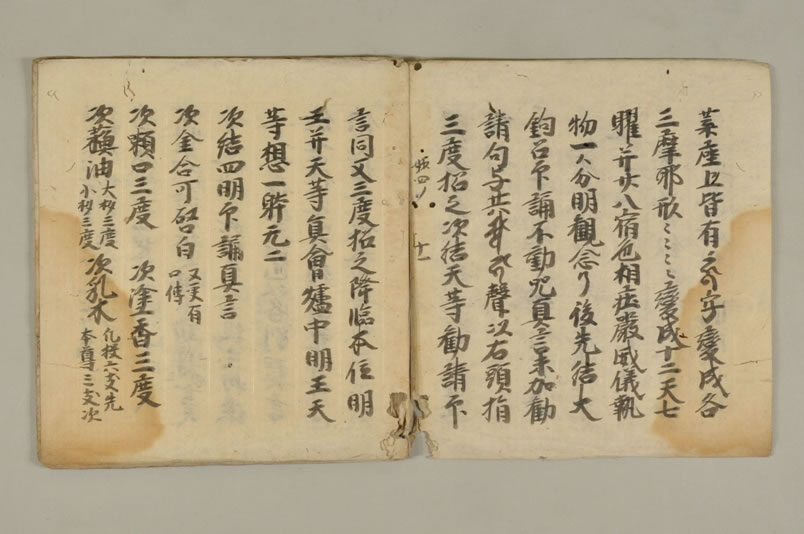 葉座上皆有字變成各
三摩耶形〻〻〻〻變成十二天七
曜并廿八宿色相莊嚴威儀執
物一〻分明觀念了後先結大
鈎召印誦不動呪真言末加勸
請句與共聲以右頭指
三度招之次結天等勸請印
十一
言同又三度招之降臨本位明
王并天等真會爐中明王天
等想一躰无二
次結四明印誦真言
次金合可啓白 又更有
口傳
次嗽口三度 次塗香三度
次蘓油 大杓三度
小杓三度
次乳木
六支先
本尊三支次